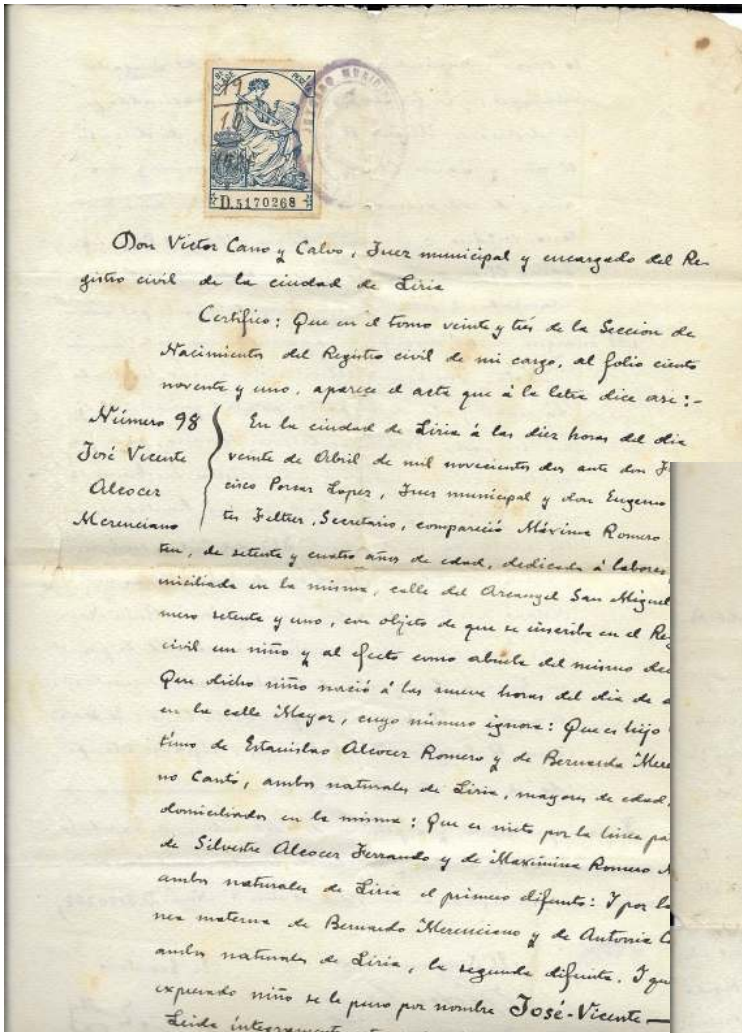 D.5170268
Don Victor Cano y Calvo, Juez municipal y encargado del Re-
gistro civil de la ciudad de Liria
Certifico: Que en el tomo veinte y tres de la Sección de
Nacimientos del Registro civil de mi cargo, al folio ciento
noventa y uno, aparece el acta que á la letra dice asi:-
Número 98
José Vicente
Alcocer
Merenciano
En la ciudad de Liria á las diez horas del dia
veinte de Abril de mil novecientos dos ante don
cisco Porcar Lopez, Juez municipal y don Eugenio
tes Feltrer, Secretario, compareció Máxima Romero
de setenta y cuatro años de edad, dedicada á labores,
miciliada en la misma, calle del Arcangel San Miguel
mero setenta y uno, con objeto de que se inscriba en el Re
civil un niño y al efecto como abuela del mismo de
Que dicho niño nació á las nueve horas del dia de a
en la calle Mayor, cuyo número ignora: Que es hijo
timo de Estanislao Alcocer Romero y de Bernarda Mere
no Cantó, ambos naturales de Liria, mayores de edad,
domiciliados en la misma: Que es nieto por la linea pa
de Silvestre Alcocer Ferrando y de Maximina Romero
ambos naturales de Liria el primero difunto: Y por la
nea materna de Bernardo Merenciano y de Antonia C
ambos naturales de Liria, la segunda difunta. Y que
expresado niño se le puso por nombre José-Vicente—
Leida integramente